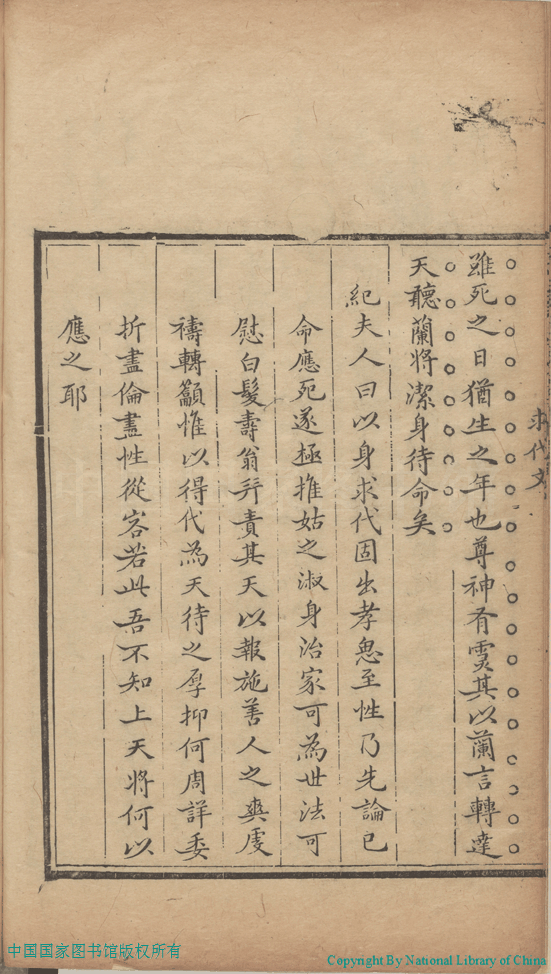 求代文
雖死之日猶生之年也尊神有靈其以蘭言轉達
天聽蘭將潔身待命矣
紀夫人曰以身求代固出孝思至性乃先論已
命應死遂極推姑之淑身治家可為世法可
慰白髮壽翁並責其天以報施善人之爽虔
禱轉籲惟以得代為天待之厚抑何周詳委
折盡倫盡性從容若此吾不知上天將何以
應之耶
中国国家图书馆版权所有
Copyright By National Library of China